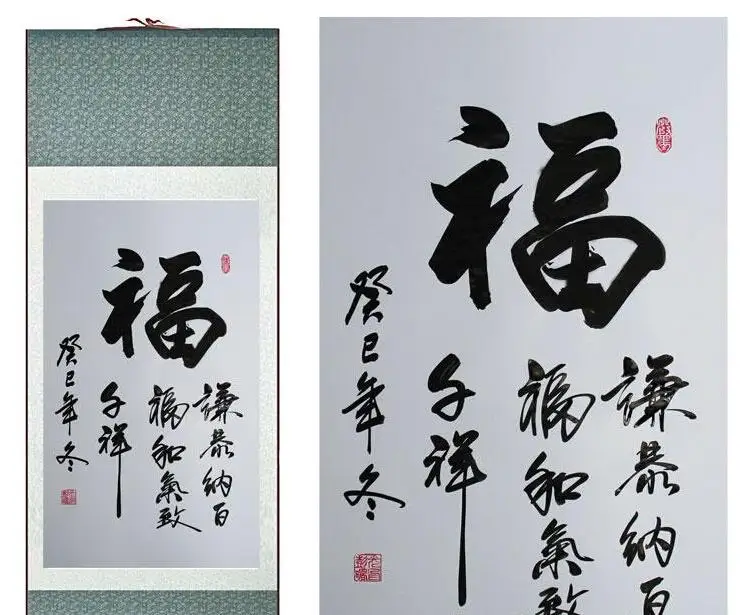 福
謙恭納百
福和氣致
千祥
癸巳年冬
福
謙恭納百
福和氣致
千祥
癸巳年冬